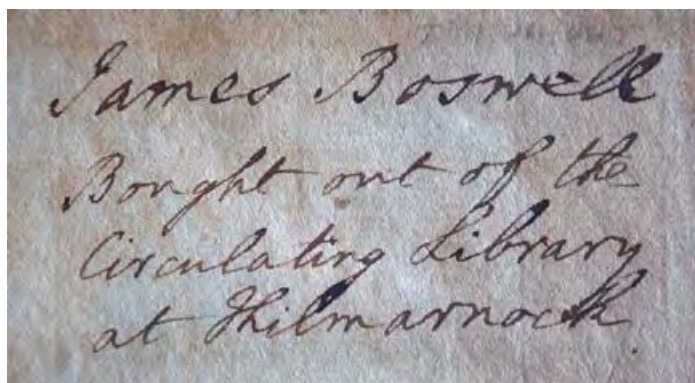 James Boswell
Bought out of the
Circulating Library
at Kilmarnock.